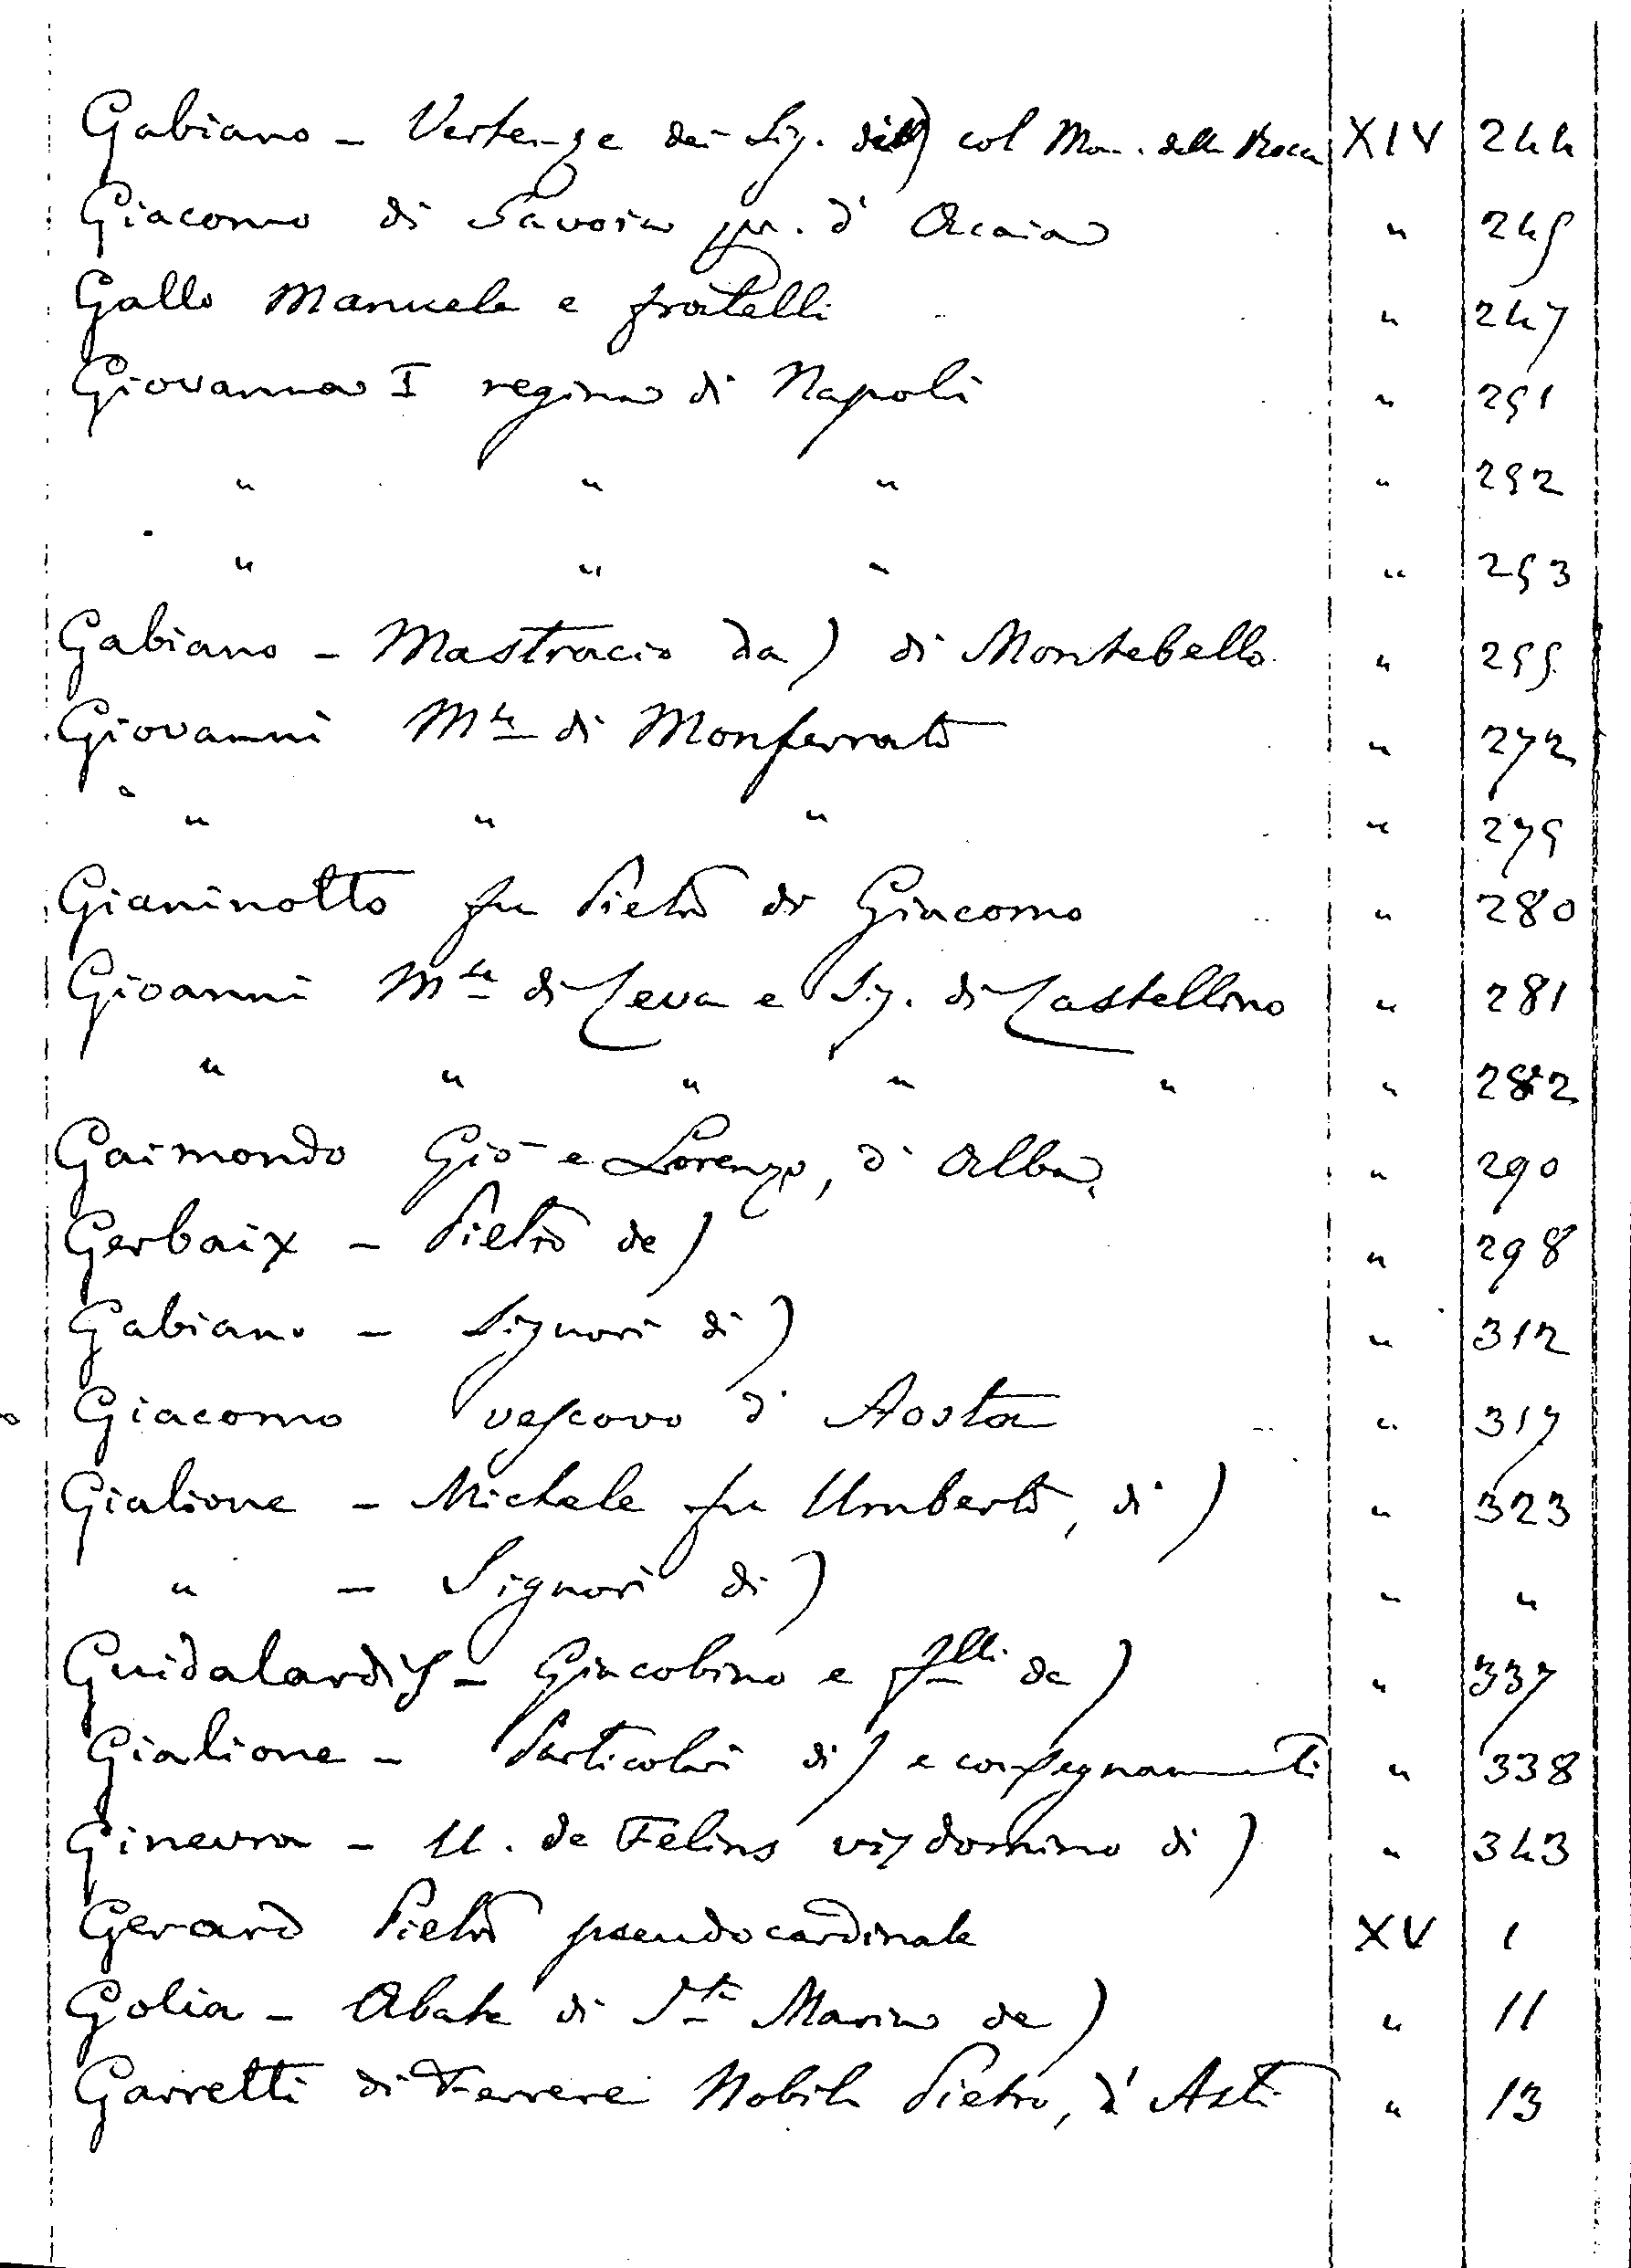 Gabiano - Vertenze dei Sig. di) col Mon. della Rocca XIV 244
Giacomo di Savoia pr. d' Acaia " 245
Gallo Manuele e fratelli " 247
Giovanna I regina di Napoli " 251
" " " " 252
" " " " 253
Gabiano - Mastracio da) di Montebello " 255
Giovanni Mse di Monferrato " 272
" " " " 275
Gianinotto fu Pietro di Giacomo " 280
Gioanni Mse di Ceva e Sig. di Castellino " 281
" " " " " " 282
Gaimondo Gio e Lorenzo, d' Alba " 290
Gerbaix - Pietro de) " 298
Gabiano - Signori di) " 312
Giacomo vescovo d' Aosta " 317
Gialione - Michele fu Umberto, di) " 323
" - Signori di) " "
Guidalardis - Giacobino e flli de) " 337
Gialione - Particolari di) e consegnamenti " 338
Ginevra - U. de Felins visdomino di) " 343
Gerard Pietro pseudocardinale XV 1
Golia - Abate di Sta Maria de) " 11
Garretti di Ferrere Nobile Pietro, d' Asti " 13